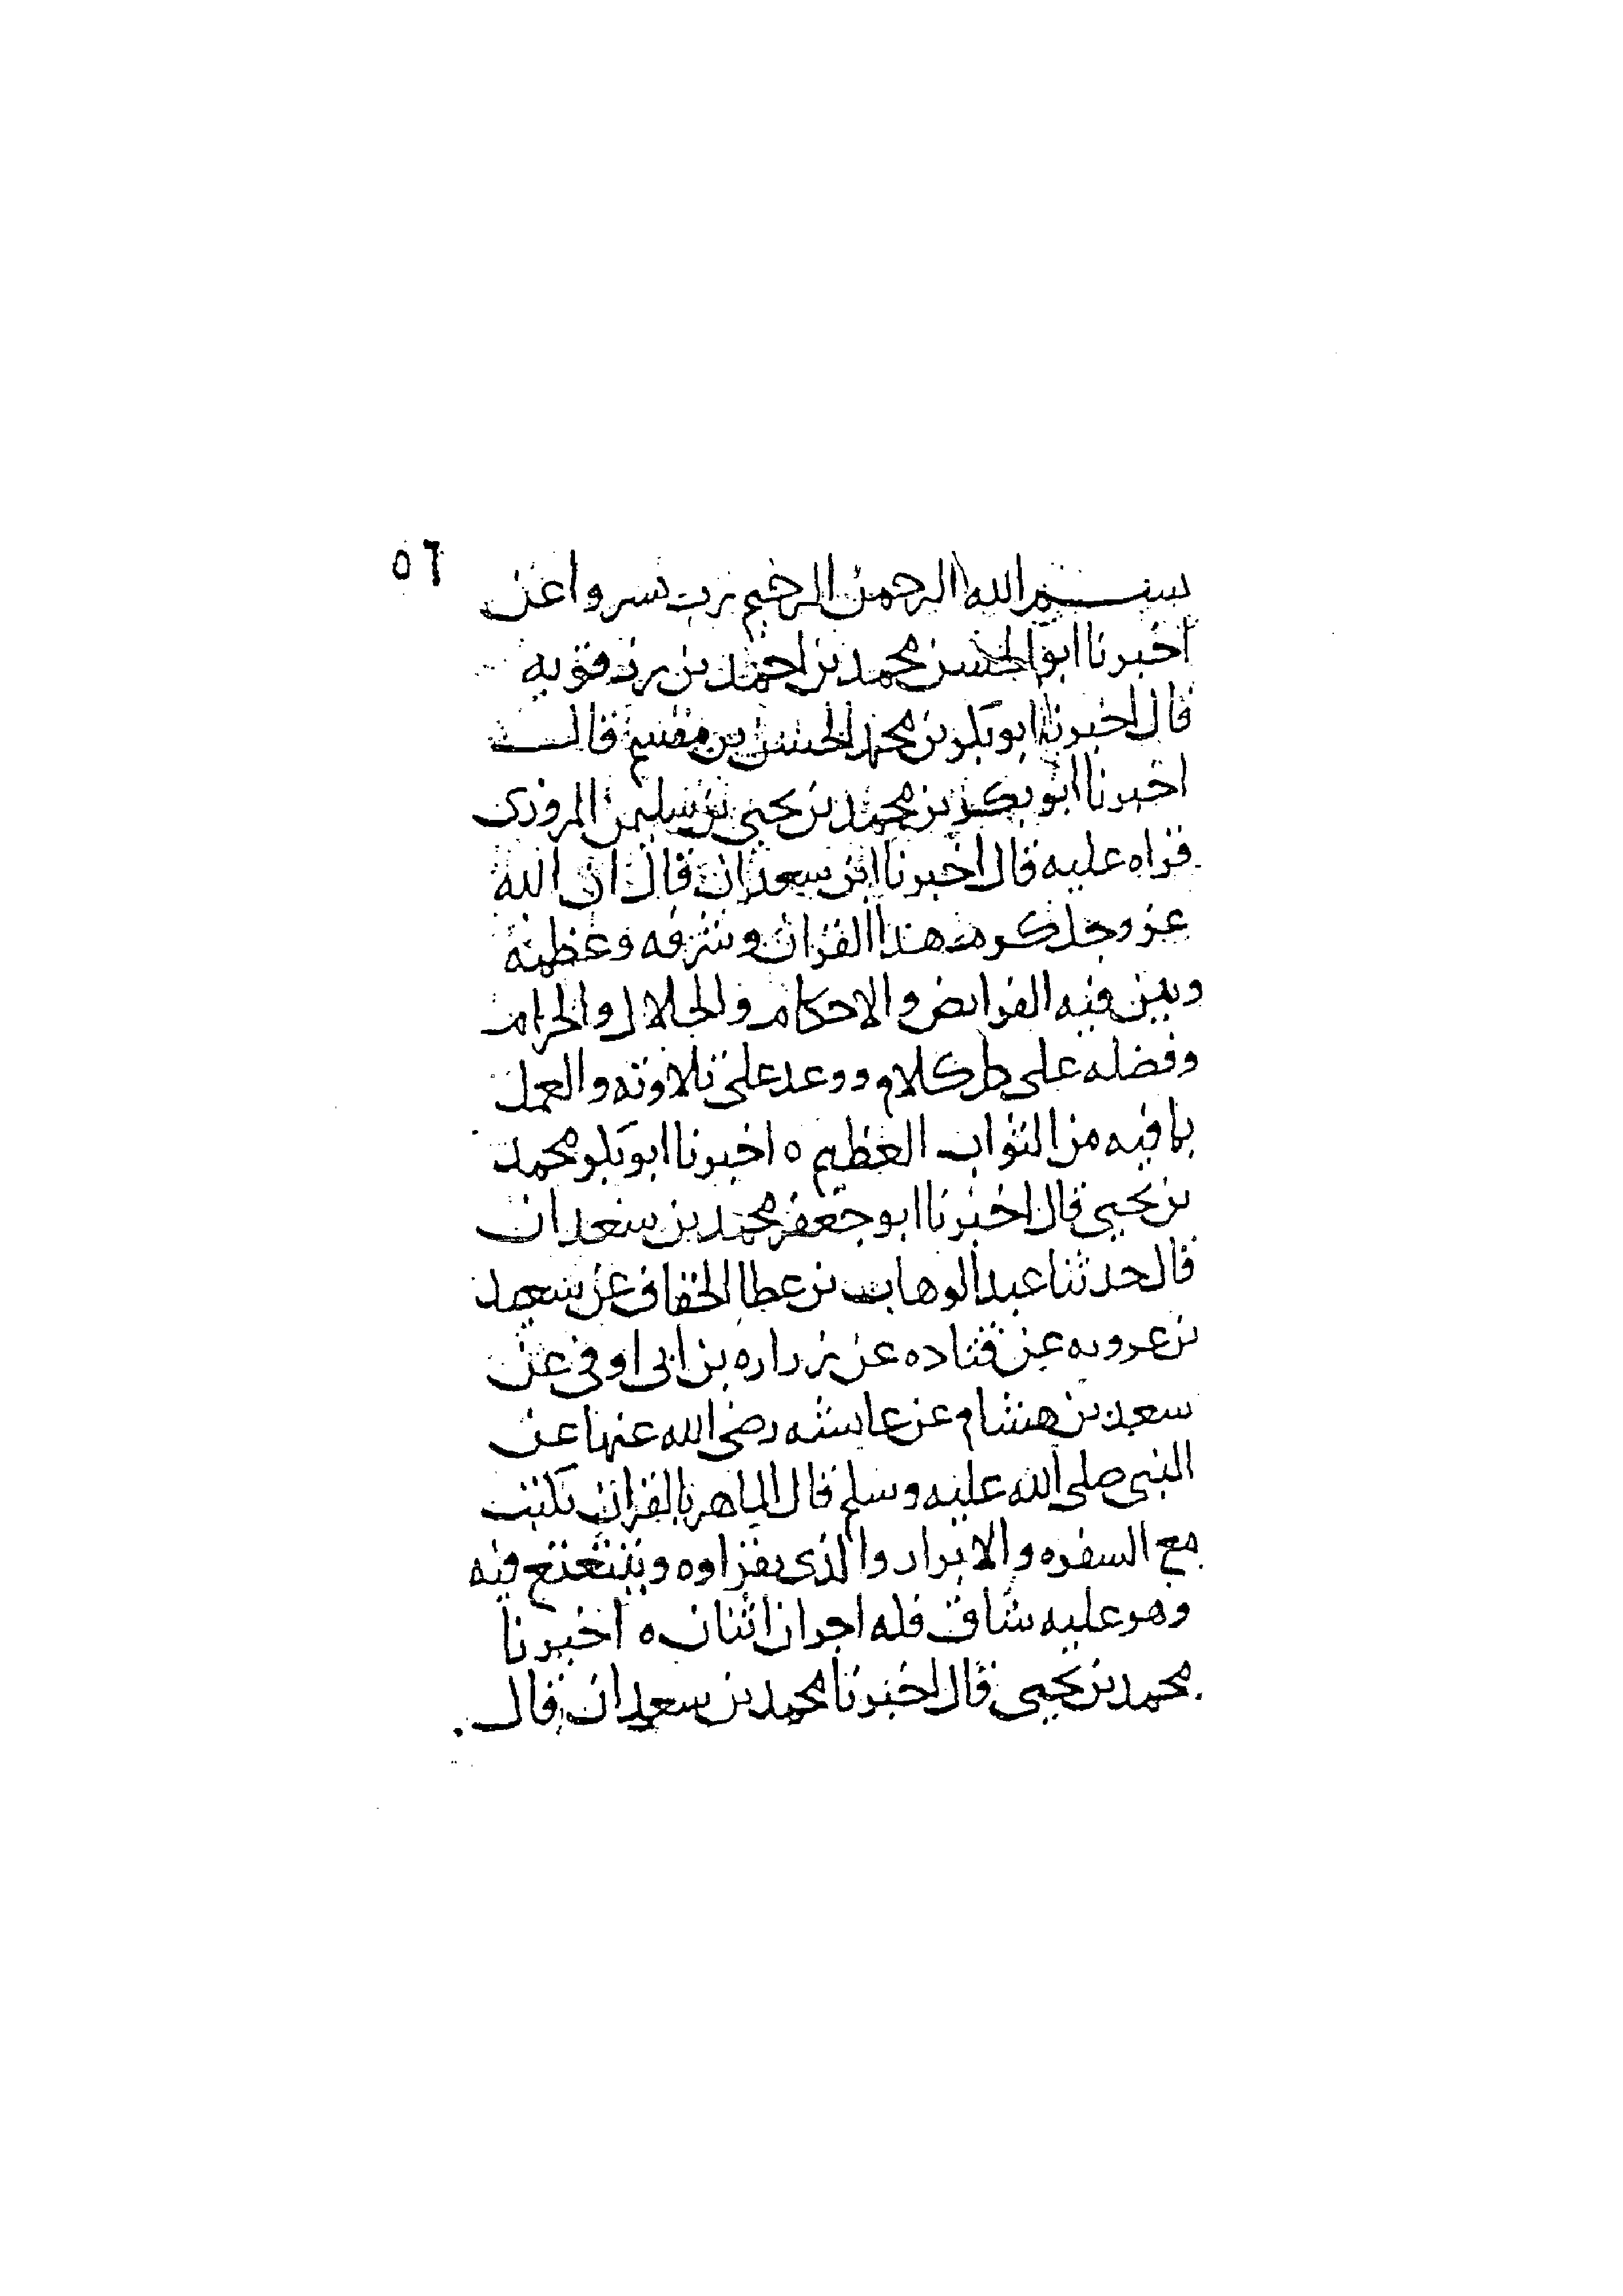 ٥٦
بسم الله الرحمن الرحيم رب يسر واعن
اخبرنا ابو الحسن محمد بن احمد بن رزقويه
قال اخبرنا ابو بكر بن محمد الحسن بن مقسم قال
اخبرنا ابو بكر بن محمد بن يحيى بن سليمن المروزى
قراه عليه قال اخبرنا ابن سعدان قال ان الله
عز وجل كرم هذا القران وشرفه وعظمه
وبين فيه الفرايض والاحكام والحلال والحرام
وفضله على كل كلام ووعد على تلاوته والعمل
بما فيه من الثواب العظيم ٥ اخبرنا ابو بكر محمد
بن يحيى قال اخبرنا ابو جعفر محمد بن سعدان
قال حدثنا عبد الوهاب بن عطا الخفاف عن سعيد
بن عروبه عن قتاده عن زراره بن ابى اوفى عن
سعد بن هشام عن عايشه رضى الله عنها عن
النبى صلى الله عليه وسلم قال الماهر بالقران يكتب
مع السفره والابرار والذى يقراوه ويتتعتع فيه
وهو عليه شاق فله اجران اثنان ٥ اخبرنا
محمد بن يحيى قال اخبرنا محمد بن سعدان قال